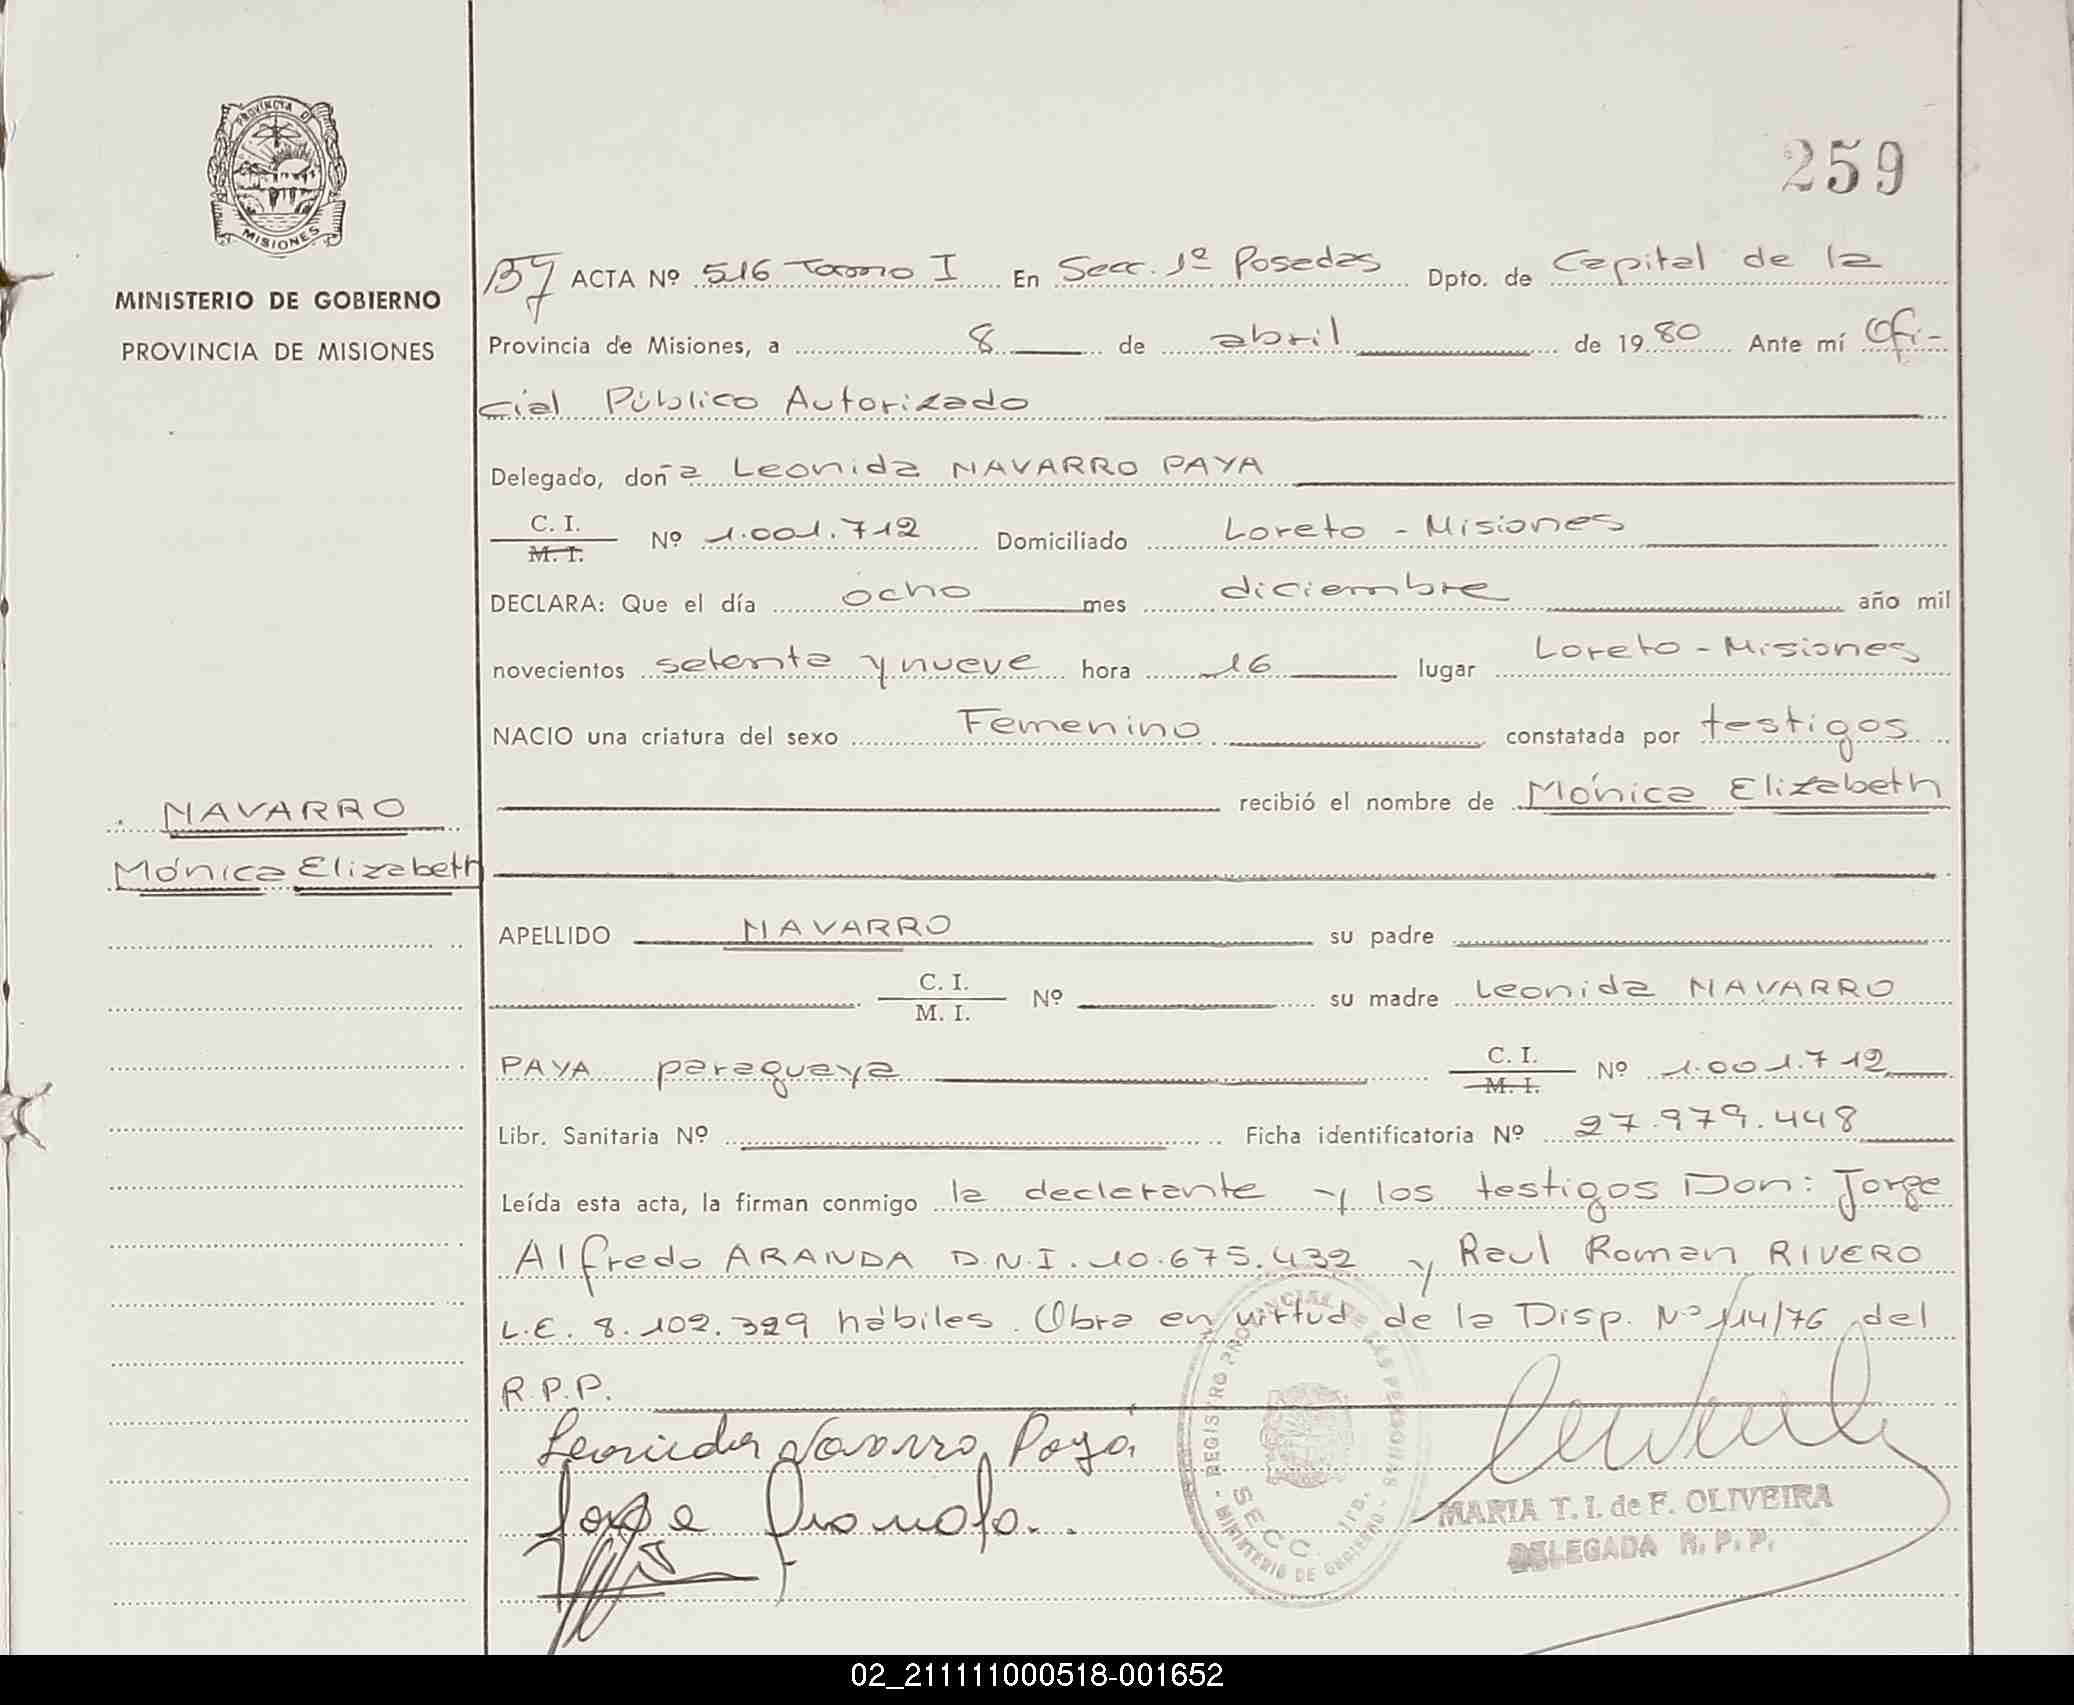 PROVINCIA DE
MISIONES
MINISTERIO DE GOBIERNO
PROVINCIA DE MISIONES
259
ACTA Nº 516 Tomo I En Secc. 1º Posadas Dpto. de Capital de la
Provincia de Misiones, a 8 de abril de 1980 Ante mí Ofi-
cial Público Autorizado
Delegado, doña Leonida NAVARRO PAYA
C. I.
M. I. Nº 1.001.712 Domiciliado Loreto - Misiones
DECLARA: Que el día ocho mes diciembre año mil
novecientos setenta y nueve hora 16 lugar Loreto - Misiones
NACIO una criatura del sexo Femenino constatada por testigos
recibió el nombre de Mónica Elizabeth
NAVARRO
Mónica Elizabeth
APELLIDO NAVARRO su padre
C. I.
M. I. Nº su madre Leonida NAVARRO
PAYA paraguaya C. I.
M. I. Nº 1.001.712
Libr. Sanitaria Nº Ficha identificatoria Nº 27.979.448
Leída esta acta, la firman conmigo la declarante y los testigos Don: Jorge
Alfredo ARANDA D.N.I. 10.675.432 y Raul Roman RIVERO
L.E. 8.102.329 hábiles. Obra en virtud de la Disp. Nº 114/76 del
R.P.P.
Leonida Navarro Payá
Jorge
REGISTRO PROVINCIAL DE LAS PERSONAS
SECC. 1ra.
MINISTERIO DE GOBIERNO
MARIA T. I. de F. OLIVEIRA
DELEGADA R. P. P.
02_211111000518-001652